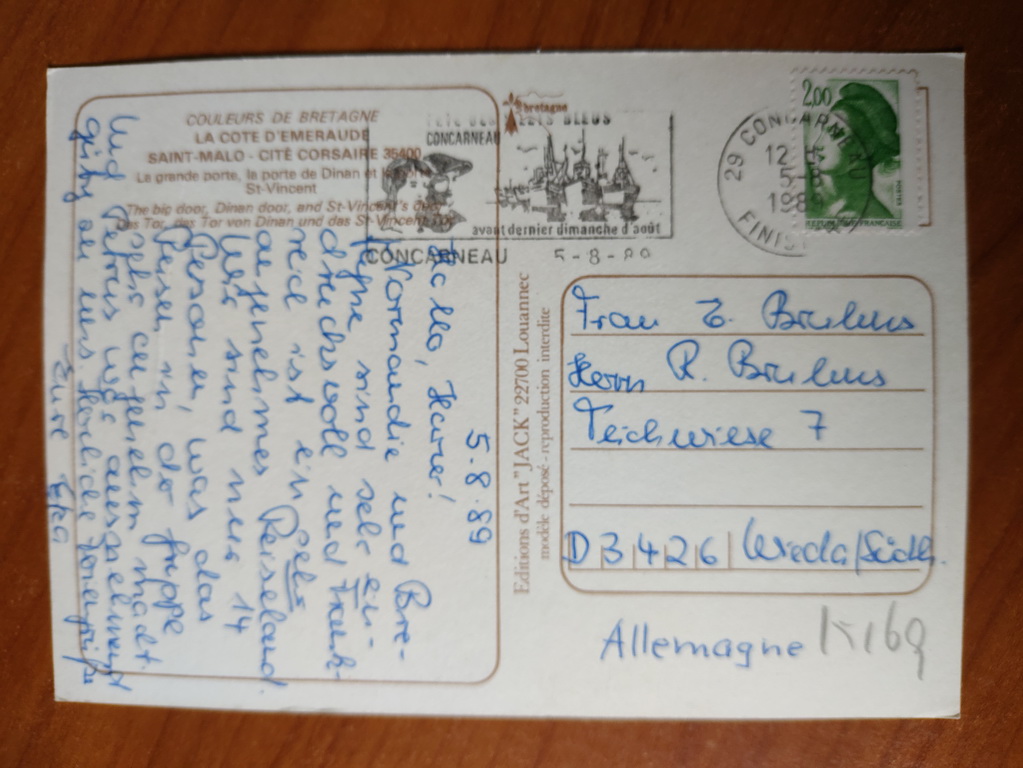 COULEURS DE BRETAGNE
LA COTE D'EMERAUDE
SAINT-MALO - CITÉ CORSAIRE 35400
La grande porte, la porte de Dinan et la porte
St-Vincent
The big door, Dinan door, and St-Vincent's door
Das Tor, das Tor von Dinan und das St-Vincent Tor
bretagne
FETE DES FILETS BLEUS
CONCARNEAU
avant dernier dimanche d'août
CONCARNEAU 5-8-89
29 CONCARNEAU
12 H
5-8
1989
FINIST
2,00
REPUBLIQUE FRANÇAISE
POSTES
Editions d'Art "JACK" 22700 Louannec
modèle déposé - reproduction interdite
5.8.89
Hallo,
Normandie und Bre-
tagne sind sehr ein-
drucksvoll und Frank-
reich ist ein sehr
angenehmes Reiseland.
Wir sind nur 14
Personen, was das
Reisen in der Gruppe
sehr angenehm macht.
Und Petrus ist ausgesprochen
gütig zu uns. Herzliche
Eure
Frau
Herrn R.
Teichwiese 7
D 3426 Wieda/Südh.
Allemagne